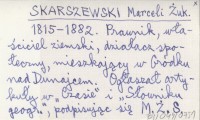 SKARSZEWSKI Marceli Żuk.
1815-1882. Prawnik, wła-
ściciel ziemski, działacz spo-
łeczny, mieszkający w Gródku
nad Dunajcem. Ogłaszał arty-
kuły w "Czasie" i "Słowniku
geogr.", podpisując się M. Ż. S.